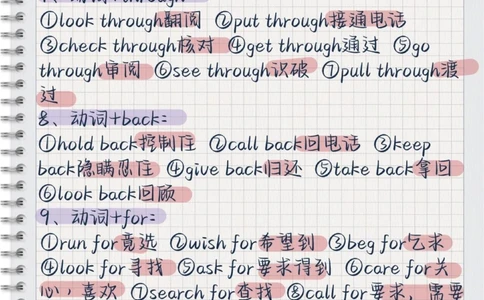 7、动词+through:
①look through翻阅 ②put through接通电话
③check through核对 ④get through通过 ⑤go
through审阅 ⑥see through识破 ⑦pull through渡
过
8、动词+back:
①hold back控制住 ②call back回电话 ③keep
back隐瞒忍住 ④give back归还 ⑤take back拿回
⑥look back回顾
9、动词+for:
①run for竞选 ②wish for希望到 ③beg for乞求
④look for寻找 ⑤ask for要求得到 ⑥care for关
心，喜欢 ⑦search for查找 ⑧call for要求，需要